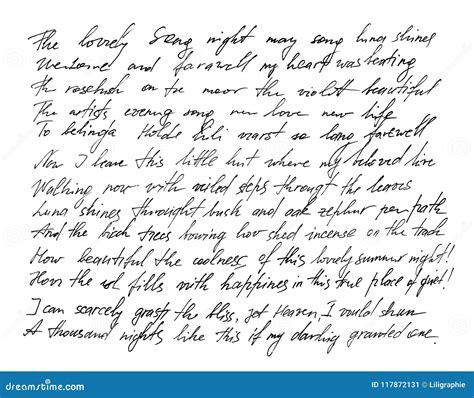 The lovely Song night may song luna shines
Welcome and farewell my heart was beating
The rosebush on the moor the violet beautiful
The artists evening song new love new life
To belinda Holde Lili warst so lang farewell
Now I leave this little hut where my beloved live
Walking now with veiled steps throught the leaves
Luna shines throught bush and oak zephyr per path
And the birch trees bowing low shed incense on the track
How beautiful the coolness of this lovely summer night!
How the soul fills with happiness in this true place of quiet!
I can scarcely grasp the bliss, yet Heaven, I would shun
A thousand nights like this if my darling granted one.
dreamstime.com
ID 117872131 © Liligraphie